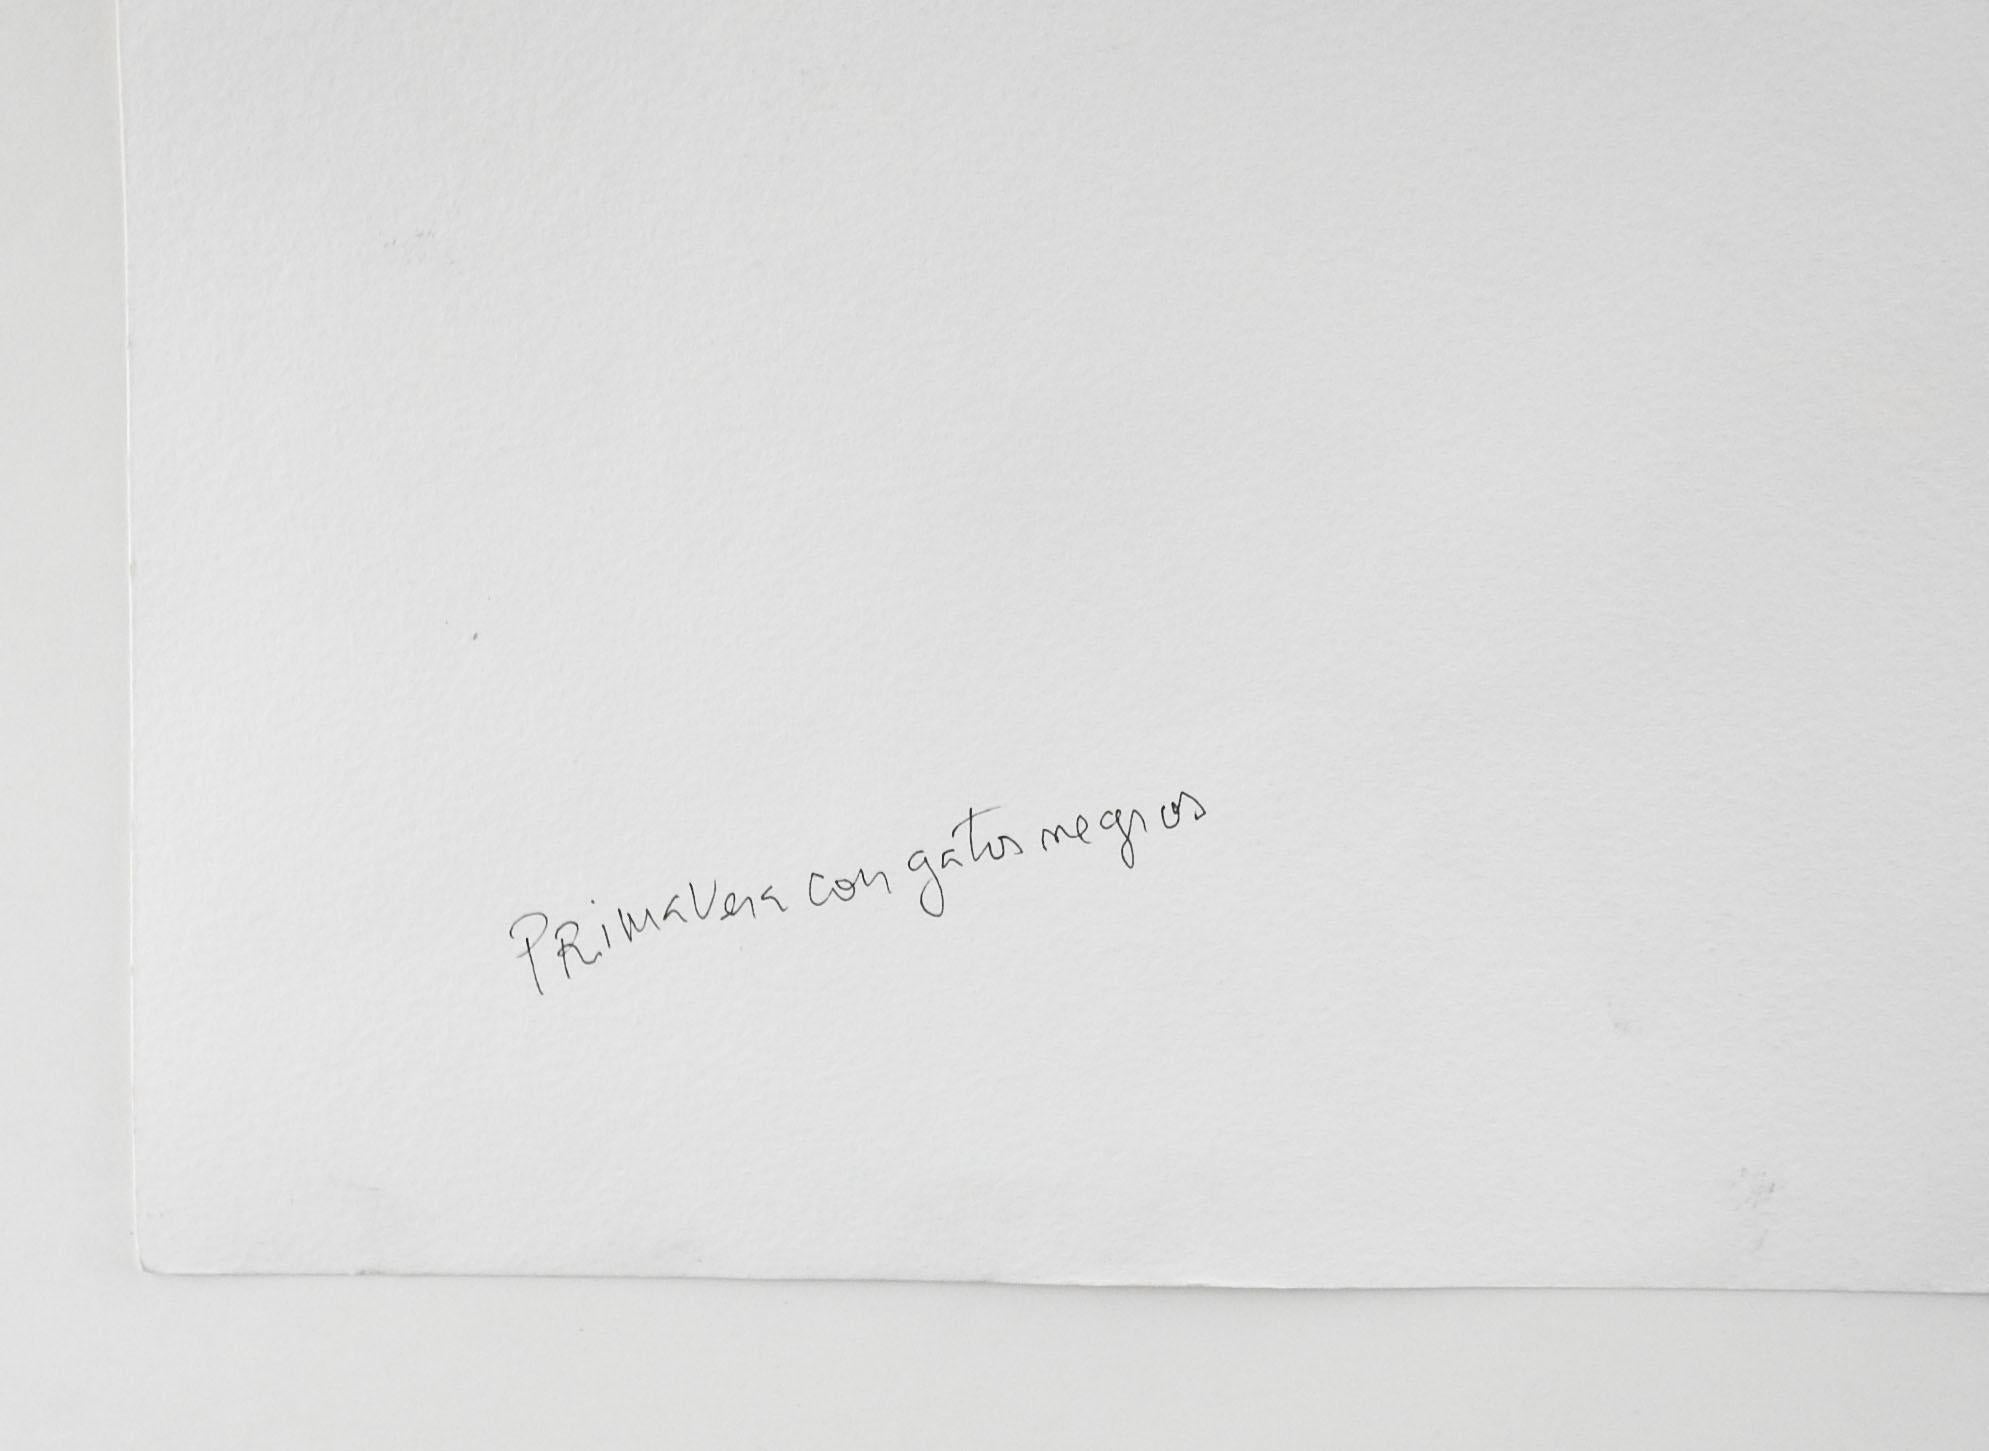 PRimaVera con gatos negros